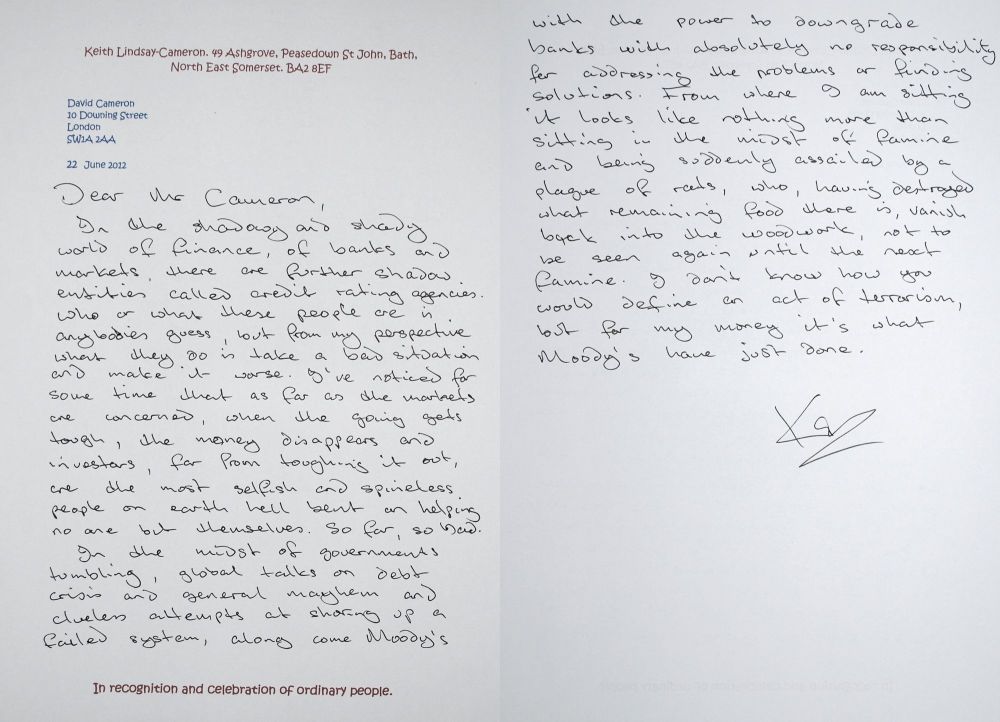 Keith Lindsay-Cameron. 49 Ashgrove, Peasedown St John, Bath,
North East Somerset. BA2 8EF
David Cameron
10 Downing Street
London
SW1A 2AA
22 June 2012
Dear Mr Cameron,
In the shadowy and shady
world of finance, of banks and
markets, there are further shadow
entities called credit rating agencies.
Who or what these people are is
anybodies guess, but from my perspective
what they do is take a bad situation
and make it worse. I've noticed for
some time that as far as the markets
are concerned, when the going gets
tough, the money disappears and
investors, far from toughing it out,
are the most selfish and spineless
people on earth hell bent on helping
no one but themselves. So far, so bad.
In the midst of governments
tumbling, global talks on debt
crisis and general mayhem and
clueless attempts at shoring up a
failed system, along come Moody's
In recognition and celebration of ordinary people.
with the power to downgrade
banks with absolutely no responsibility
for addressing the problems or finding
solutions. From where I am sitting
it looks like nothing more than
sitting in the midst of famine
and being suddenly assailed by a
plague of rats, who, having destroyed
what remaining food there is, vanish
back into the woodwork, not to
be seen again until the next
famine. I don't know how you
would define an act of terrorism,
but for my money it's what
Moody's have just done.